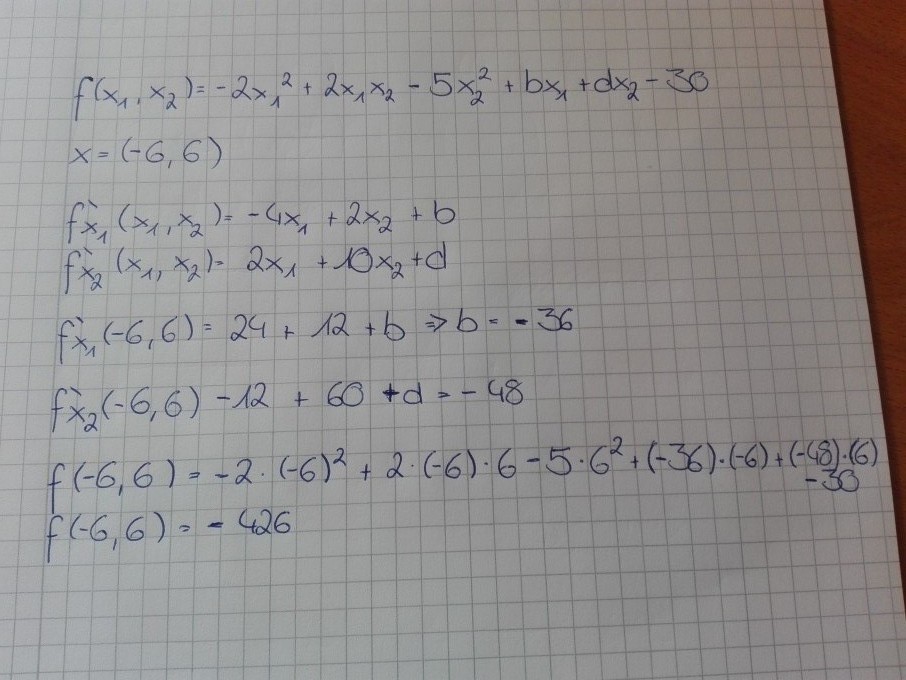 f(x₁, x₂) = -2x₁² + 2x₁x₂ - 5x₂² + bx₁ + dx₂ - 30
x = (-6, 6)
f`x₁ (x₁, x₂) = -4x₁ + 2x₂ + b
f`x₂ (x₁, x₂) = 2x₁ + 10x₂ + d
f`x₁ (-6, 6) = 24 + 12 + b ⇒ b = -36
f`x₂ (-6, 6) -12 + 60 + d = -48
f(-6, 6) = -2 · (-6)² + 2 · (-6) · 6 - 5 · 6² + (-36) · (-6) + (-48) · (6)
-30
f(-6, 6) = -426